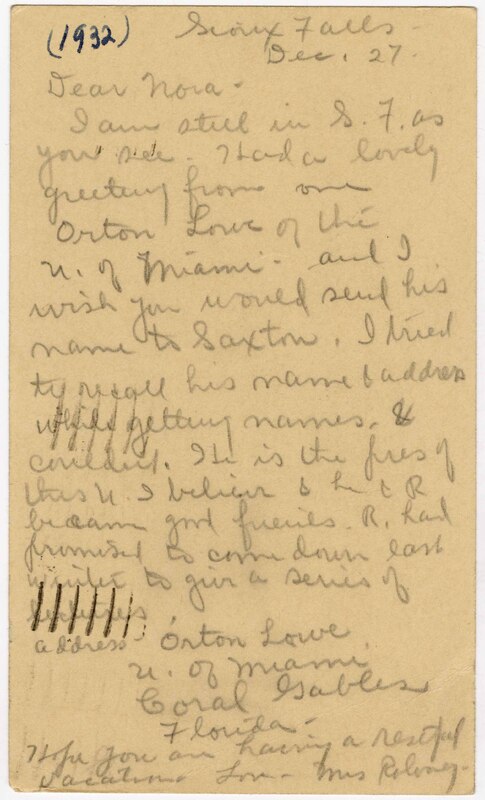 (1932)
Sioux Falls-
Dec. 27.
Dear Nora-
I am still in S. F. as
you see. Had a lovely
greeting from one
Orton Lowe of the
U. of Miami- and I
wish you would send his
name to Saxton. I tried
to recall his name & address
while getting names. &
couldn't. He is the pres of
this U. I believe & he & R
became good friends. R. had
promised to come down last
winter to give a series of
lectures
address- Orton Lowe,
U. of Miami
Coral Gables
Florida-
Hope you are having a restful
vacation Love- Mrs Rolvaag-